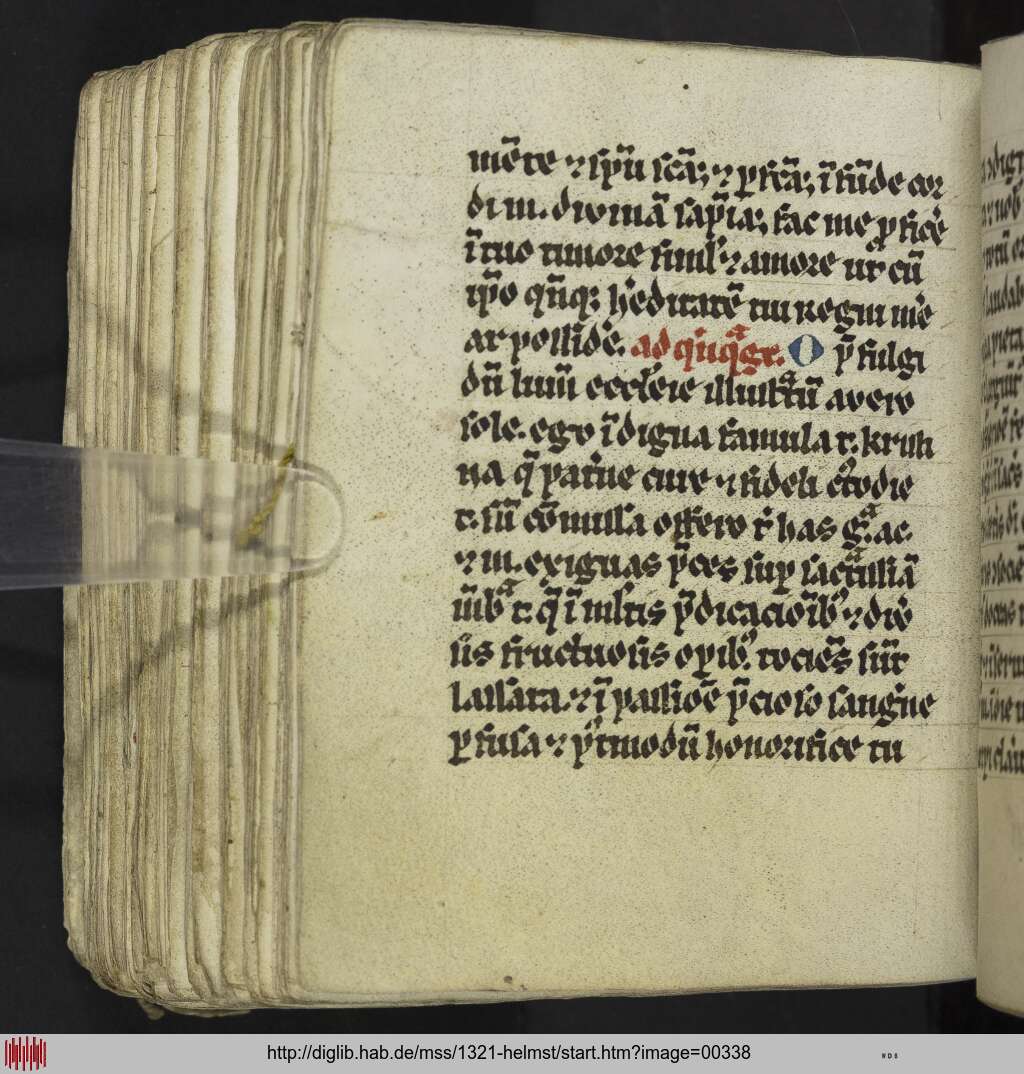 mēte ⁊ spū scā; ⁊ ꝑfcā; ī fūde cor
di m. diuinā sapīa; fac me ꝓficē
ī tuo timore simlʼ ⁊ amore ut cū
ip̄o qn̄q; hʼeditatē tui regni mē
ar possidē. ad qi̇nqͣg̅. O p̄fulgi
dū lumē ecclēie illustͣtū a vero
sole. ego īdigna famula t. kristi
na q̄ patne cure ⁊ fidel
t. sū cōmissa offero t̄ has gͣ. ac.
⁊ m. exiguas p̄ces suꝑ sac
mͣbʼ t. q̄ ī mltis p̄dicacōibʼ ⁊ diūͨ
sis fructuosis oꝑibʼ. tociēs sūt
lassata. ⁊ ī passiōe p̄cioso sangi̇ne
ꝑfusa ⁊ p̄tmodū honorifice tu
http://diglib.hab.de/mss/1321-helmst/start.htm?image=00338